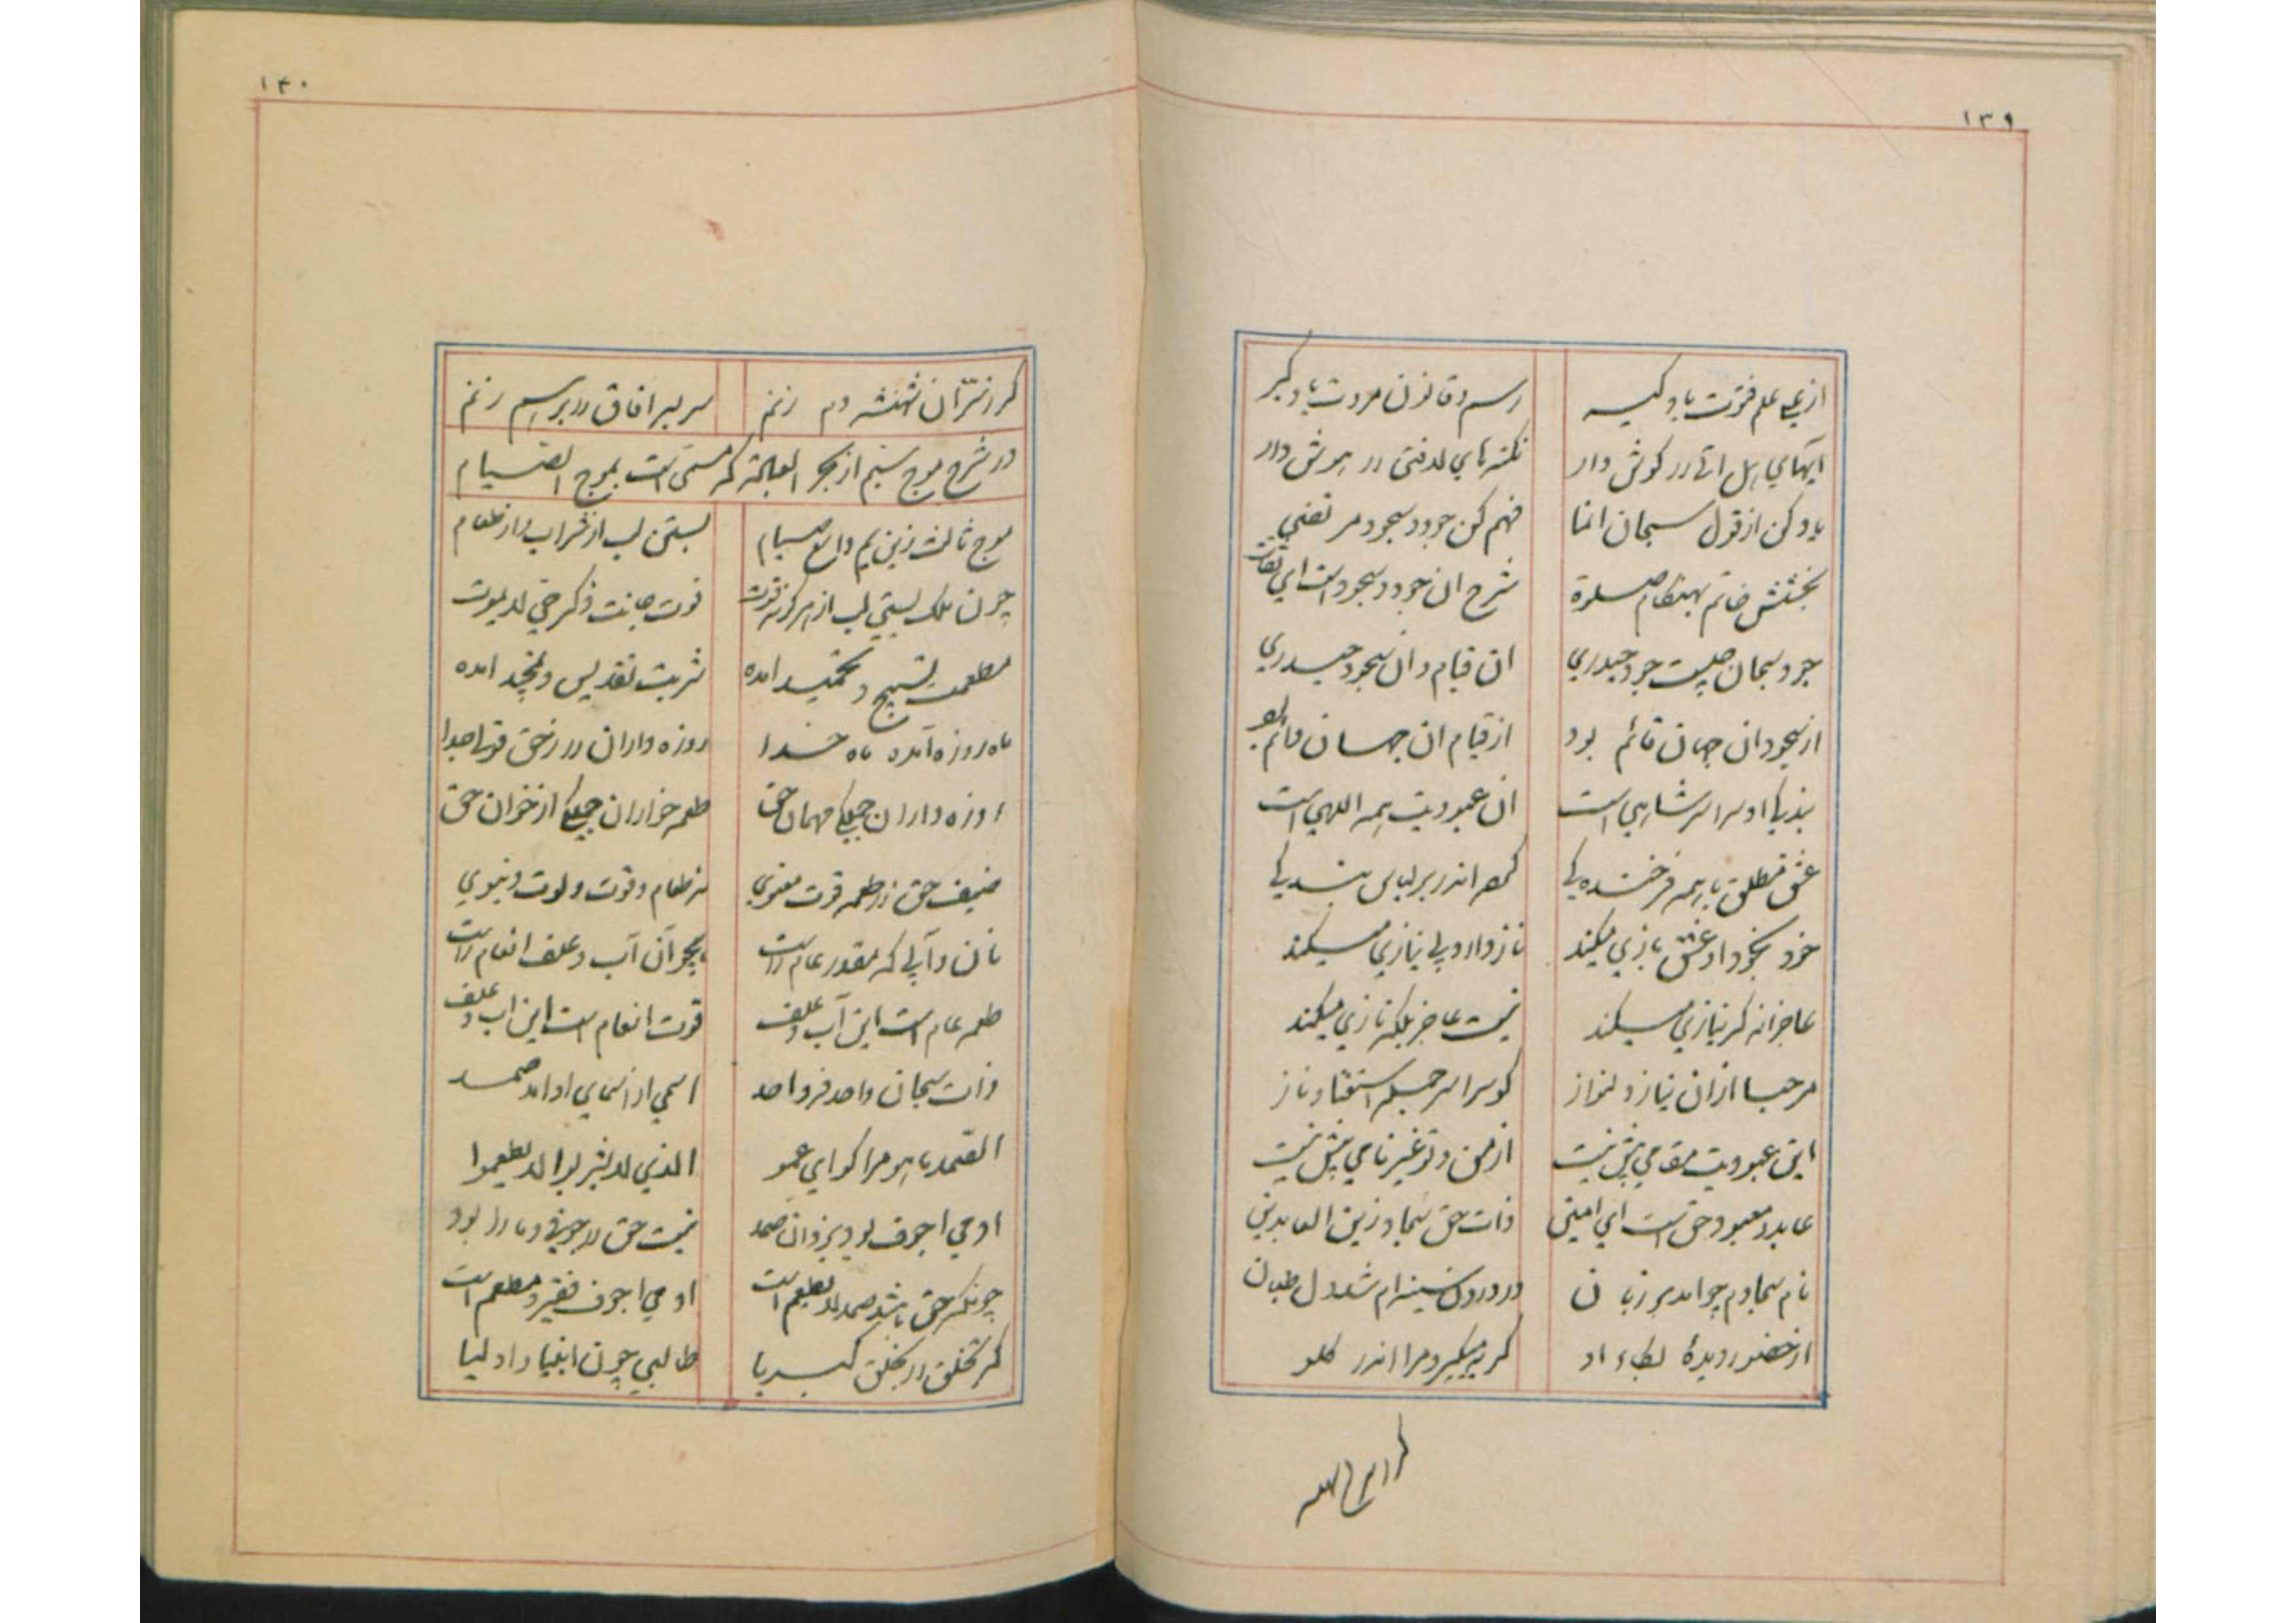 ۱۳۹
از نبی علم فتوت یاد گیر رسم و قانون مروت یاد گیر
آیهای هل اتی در گوش دار نکته های لافتی در هوش دار
یاد کن از قول سبحان انما فهم کن جود و سجود مرتضی
بخشش خاتم بهنگام صلوة شرح ان جود و سجود است ای ثقات
جود سبحان چیست جود حیدری ان قیام و ان سجود حیدری
از سجود ان جهان قائم بود از قیام ان جهان قائم بود
او سراسر شاهی است ان عبودیت همه اللهی است
عشق مطلق با همه فرخندگی اندر بر لباس بندگی
خود بخود او عشق بازی میکند ناز دارد بی نیازی میکند
عاجزانه گر نیازی میکند نیست عاجز بلکه نازی میکند
مرحبا از ان نیاز دلنواز کو سراسر جمله استغنا و ناز
این عبودیت مقامی بیش نیست از من و تو غیر نامی بیش نیست
عابد و معبود حق است ای امین ذات حق سجاد و زین العابدین
نام سجادم چو امد بر زبان در درون سینه ام شد دل طپان
از حضور و دیدهٔ او گریه میگیرد مرا اندر گلو
۱۴۰
گر ز سر آن شهنشه دم زنم سر بسر افاق را بر هم زنم
در شرح موج سیم از بحر العبادة که مسمی است بموج الصیام
موج ثالث زین یم دان صیام بستن لب از شراب و از طعام
چون ملک بستی لب از هر گونه قوت قوت جانت ذکر حی لایموت
مطعمت تسبیح و تحمید امده شربت تقدیس و تمجید امده
ماه روزه آمده ماه خدا روزه داران در ز حق قوتها جدا
روزه داران جملگی مهمان حق طعمه خواران جملگی از خوان حق
ضیف حق را طعمه قوت معنوی نز طعام و قوت و لوت دنیوی
نان و آبی که مقدور عام راست همچو آن آب و علف انعام راست
طعمه عام است این آب و علف قوت انعام است این اب و علف
ذات سبحان واحد فرد احد اسمی از اسمای او امد صمد
الصمد یا هو مرا گو ای عمو الذی لا یشربوا لا یطعموا
ادمی اجوف بود یزدان صمد نیست حق را جوف و ما را بود
چونکه حق باشد صمد لا یطعم است ادمی اجوف فقیر و مطعم است
گر تخلق در تخلق کبریا طالبی چون انبیا و اولیا